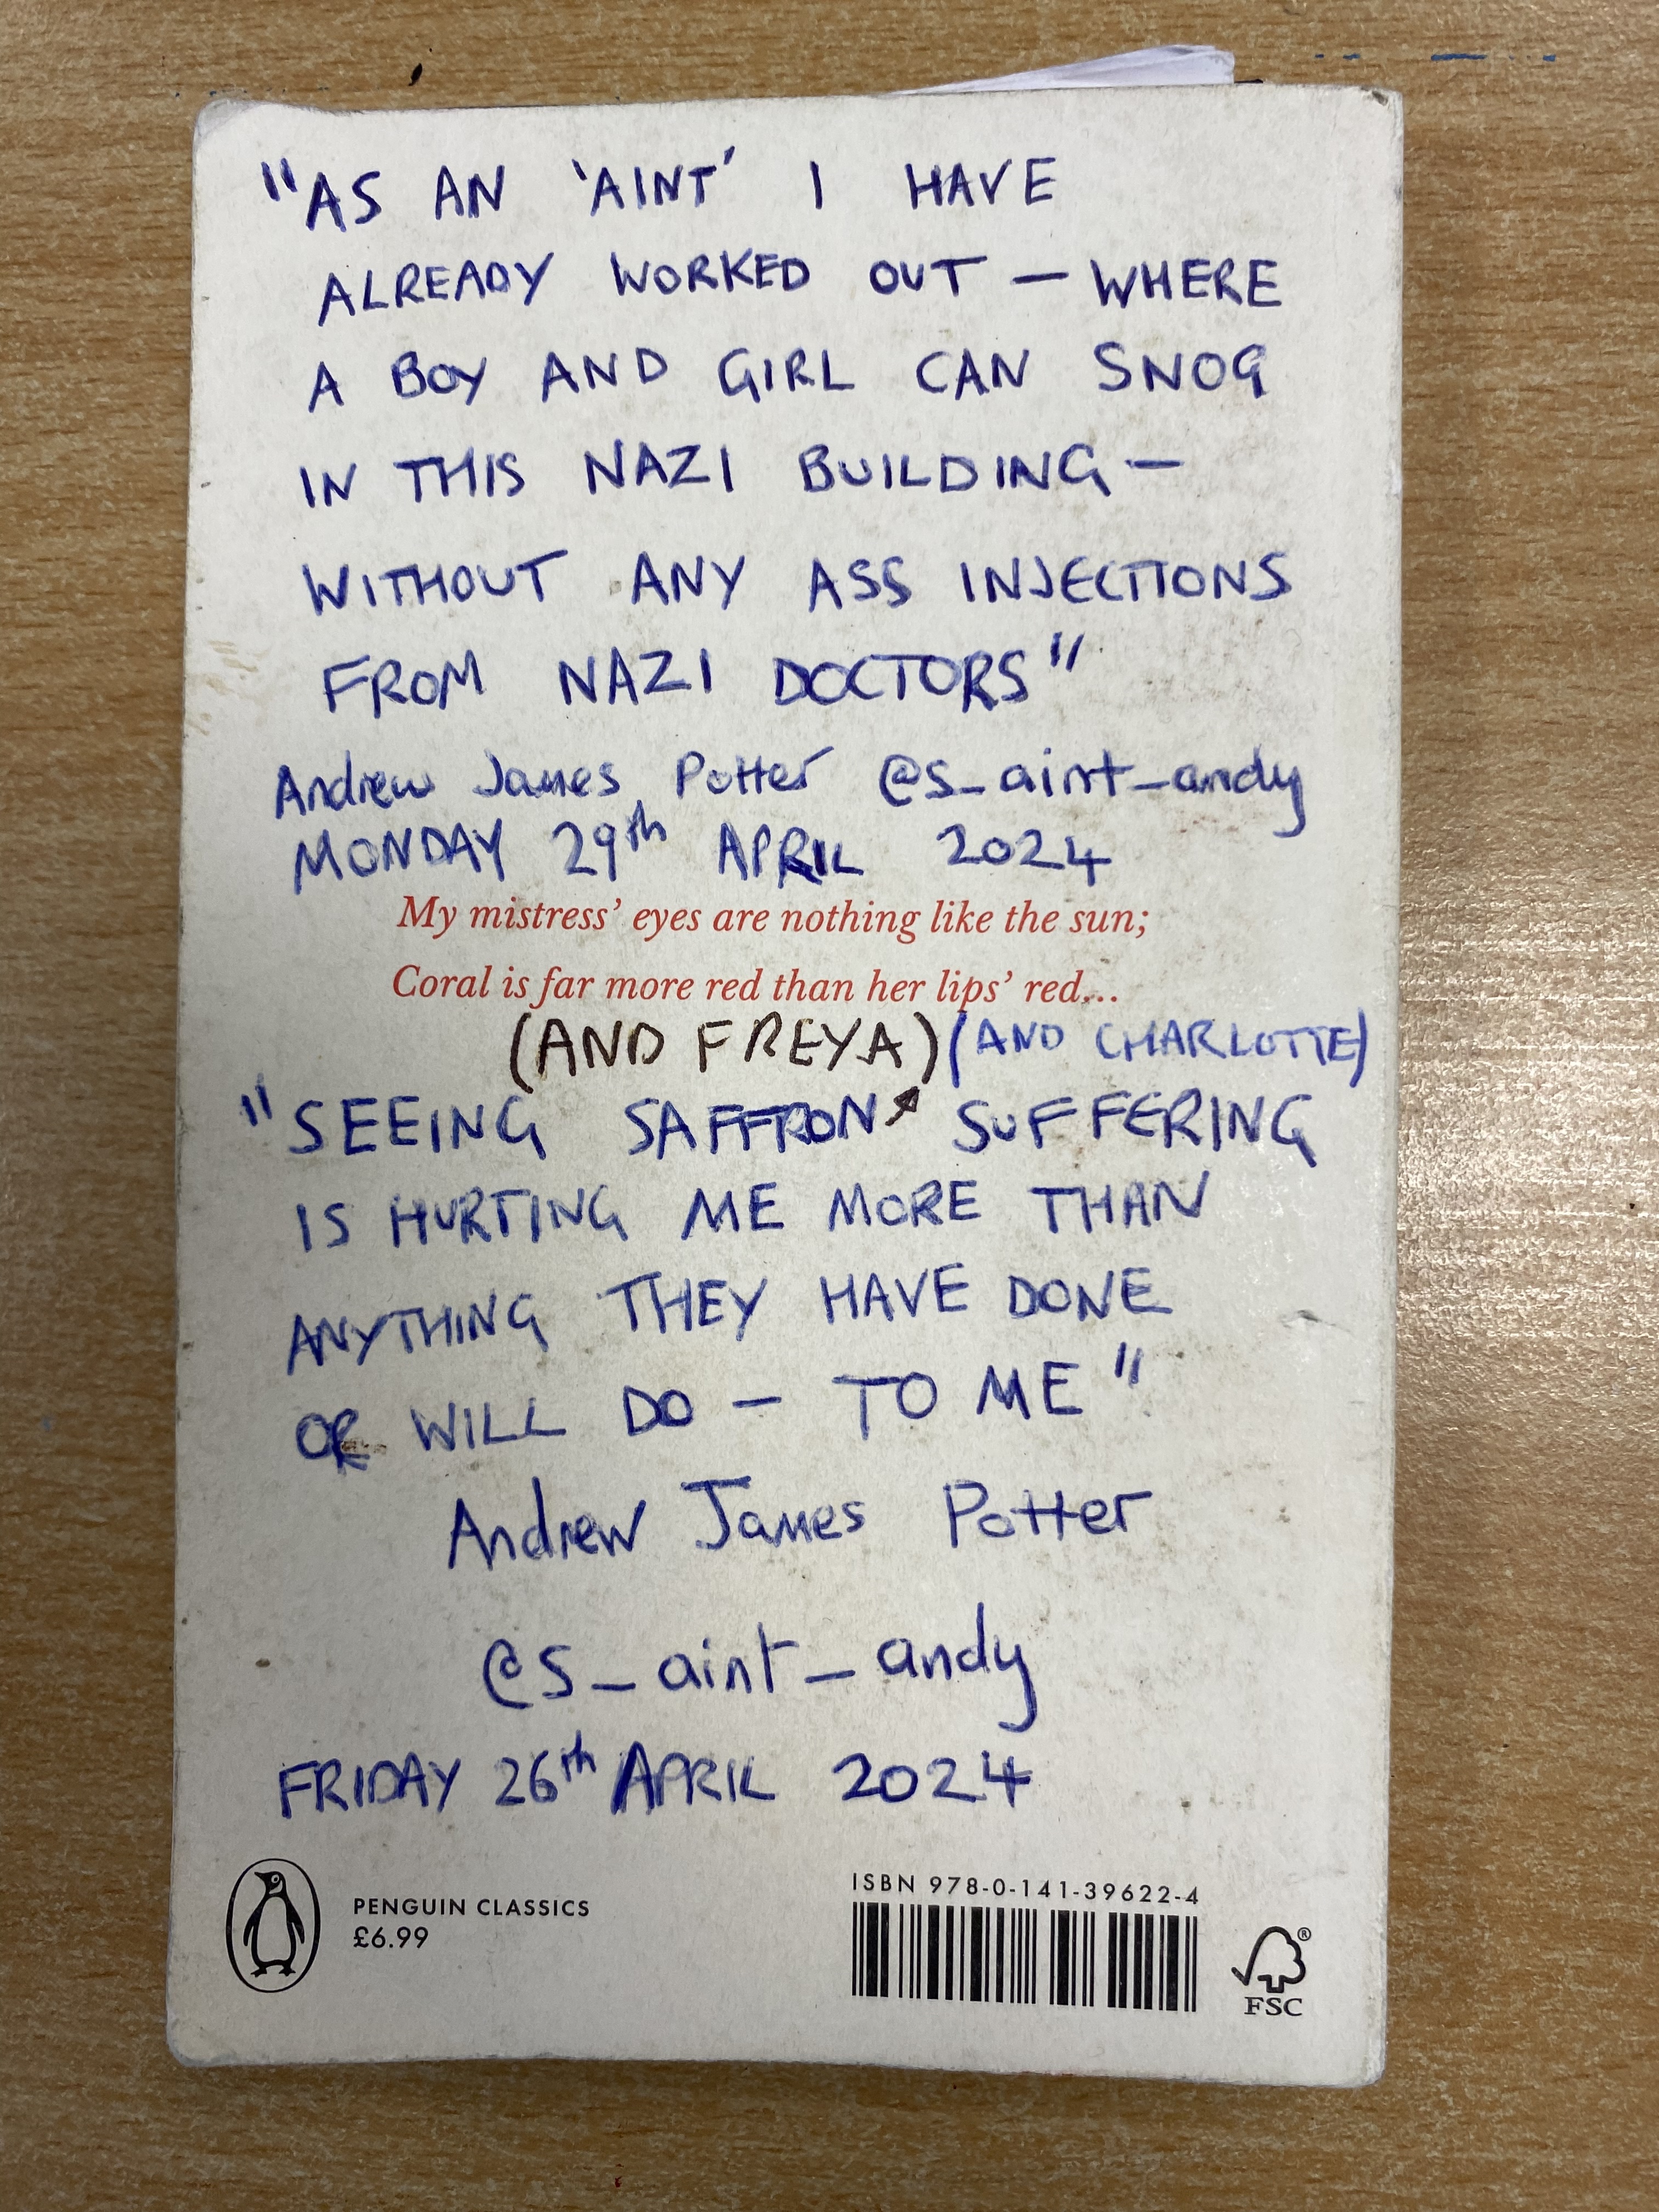 "AS AN 'AINT' I HAVE
ALREADY WORKED OUT — WHERE
A BOY AND GIRL CAN SNOG
IN THIS NAZI BUILDING —
WITHOUT ANY ASS INJECTIONS
FROM NAZI DOCTORS"
Andrew James Potter @s_aint_andy
MONDAY 29th APRIL 2024
My mistress' eyes are nothing like the sun;
Coral is far more red than her lips' red...
(AND FREYA) (AND CHARLOTTE)
"SEEING SAFFRON SUFFERING
IS HURTING ME MORE THAN
ANYTHING THEY HAVE DONE
OR WILL DO — TO ME"
Andrew James Potter
@s_aint_andy
FRIDAY 26th APRIL 2024
PENGUIN CLASSICS
£6.99
ISBN 978-0-141-39622-4
®
FSC